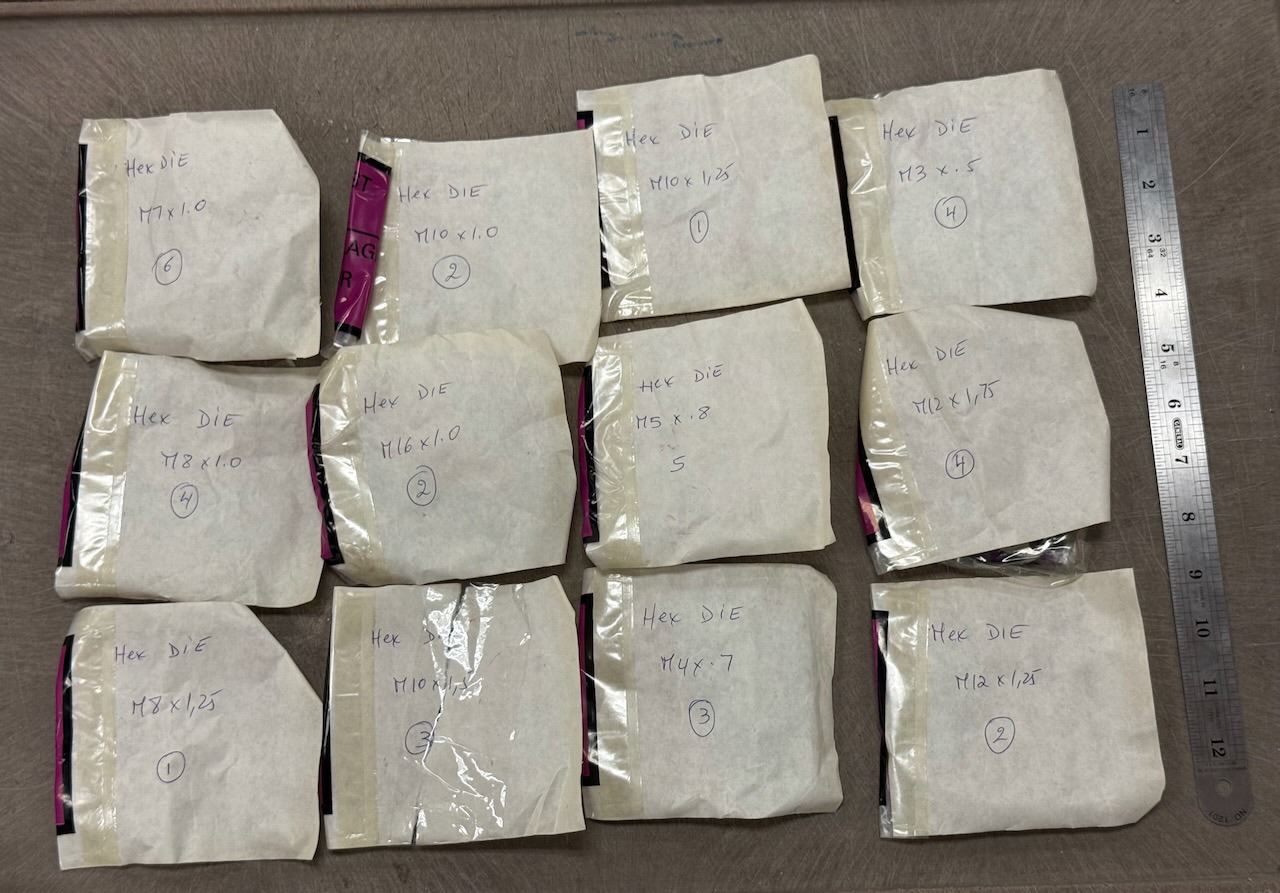 Hex DiE
M7x1.0
6
ST
AG
R
Hex DIE
M10 x1.0
2
Hex DiE
M10 x 1,25
1
Hex DiE
M3 x .5
4
Hex DiE
M8 x1.0
4
Hex DIE
M16 x1.0
2
Hex DiE
M5 x .8
5
Hex DIE
M12 x 1,75
4
Hex DiE
M8 x 1,25
1
Hex
M10 x 1,5
3
Hex DiE
M4x .7
3
Hex DIE
M12 x 1,25
2
1
2
3
32
64
4
5
8
16
6
7
8
9
10
11
12
NO. 1201